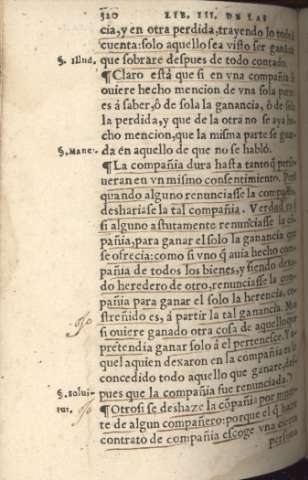 320 LIB. III. DE LAS
cia, y en otra perdida, trayendo lo todo à
cuenta: solo aquello sea visto ser ganãcia
§. Illud. que sobrare despues de todo contado.
¶Claro està que si en vna compañia se
ouiere hecho mencion de vna sola parte,
es á saber, ô de sola la ganancia, ô de sola
la perdida, y que de la otra no se aya he-
cho mencion, que la misma parte se guar-
§. Mane. da en aquello de que no se hablò.
¶La compañia dura hasta tantoq̃
ueran en vn mismo consentimiento.
quando alguno renunciasse la compañia,
desharia se la tal compañia. Verdad es
si alguno astutamente renunciasse la cõ-
pañia, para ganar el solo la ganancia que
se ofrecia: como si vno q̃ auia hecho com-
pañia de todos los bienes, y siendo
do heredero de otro, renunciasse la com-
pañia para ganar el solo la herencia, con-
streñido es, á partir la tal ganancia. Mas
si ouiere ganado otra cosa de aquello que
pretendia ganar solo á el pertenesce. Y
quel aquien dexaron en la compañia es
concedido todo aquello que ganare, des-
§. Solui- pues que la compañia fue renunciada.
tur. ¶Otrosi se deshaze la cõpañia por
te de algun compañero: porque el q̃ haze
contrato de compañia escoge vna cierta
persona